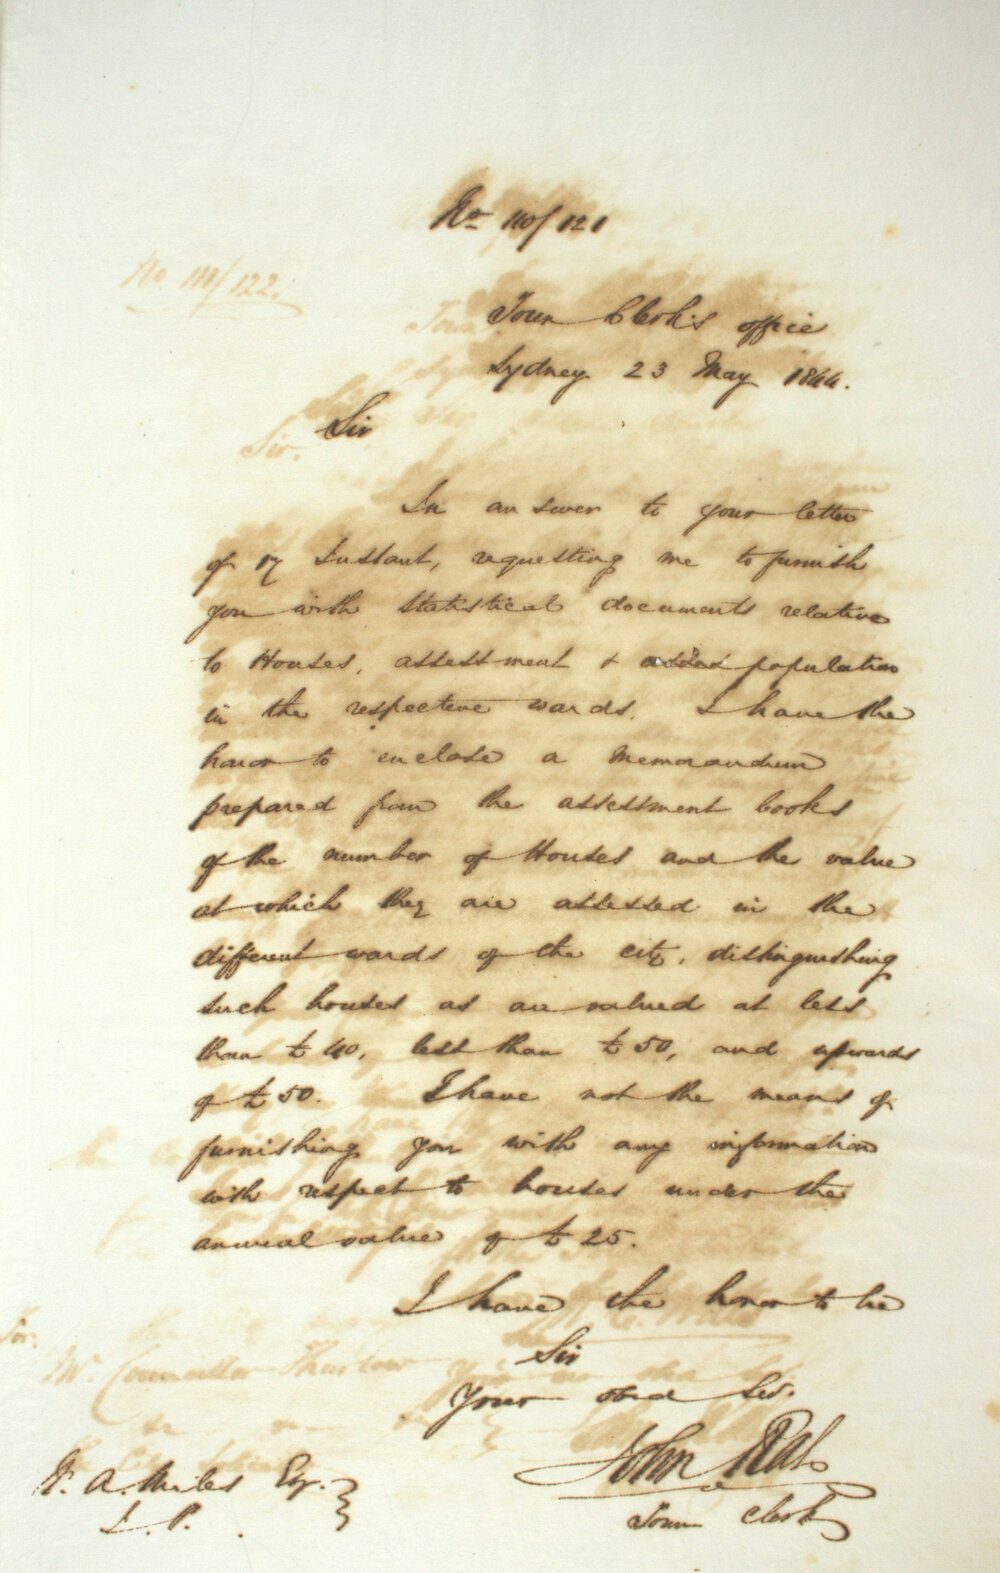 No 110/121
No 110/122.
Town Clerk's office
Sydney 23 May 1844.
Sir
In answer to your letter
of 17 Instant, requesting me to furnish
you with statistical documents relative
to Houses, assessment & population
in the respective wards. I have the
honor to enclose a memorandum
prepared from the assessment books
of the number of Houses and the value
at which they are assessed in the
different wards of the city, distinguishing
such houses as are valued at less
than £40, less than £50, and upwards
of £50. I have not the means of
furnishing you with any information
with respect to houses under the
annual value of £25.
I have the honor to be
Sir
Your obed Ser.
John
Town Clerk
Mr Councillor Thurlow
A. Miles Esq.